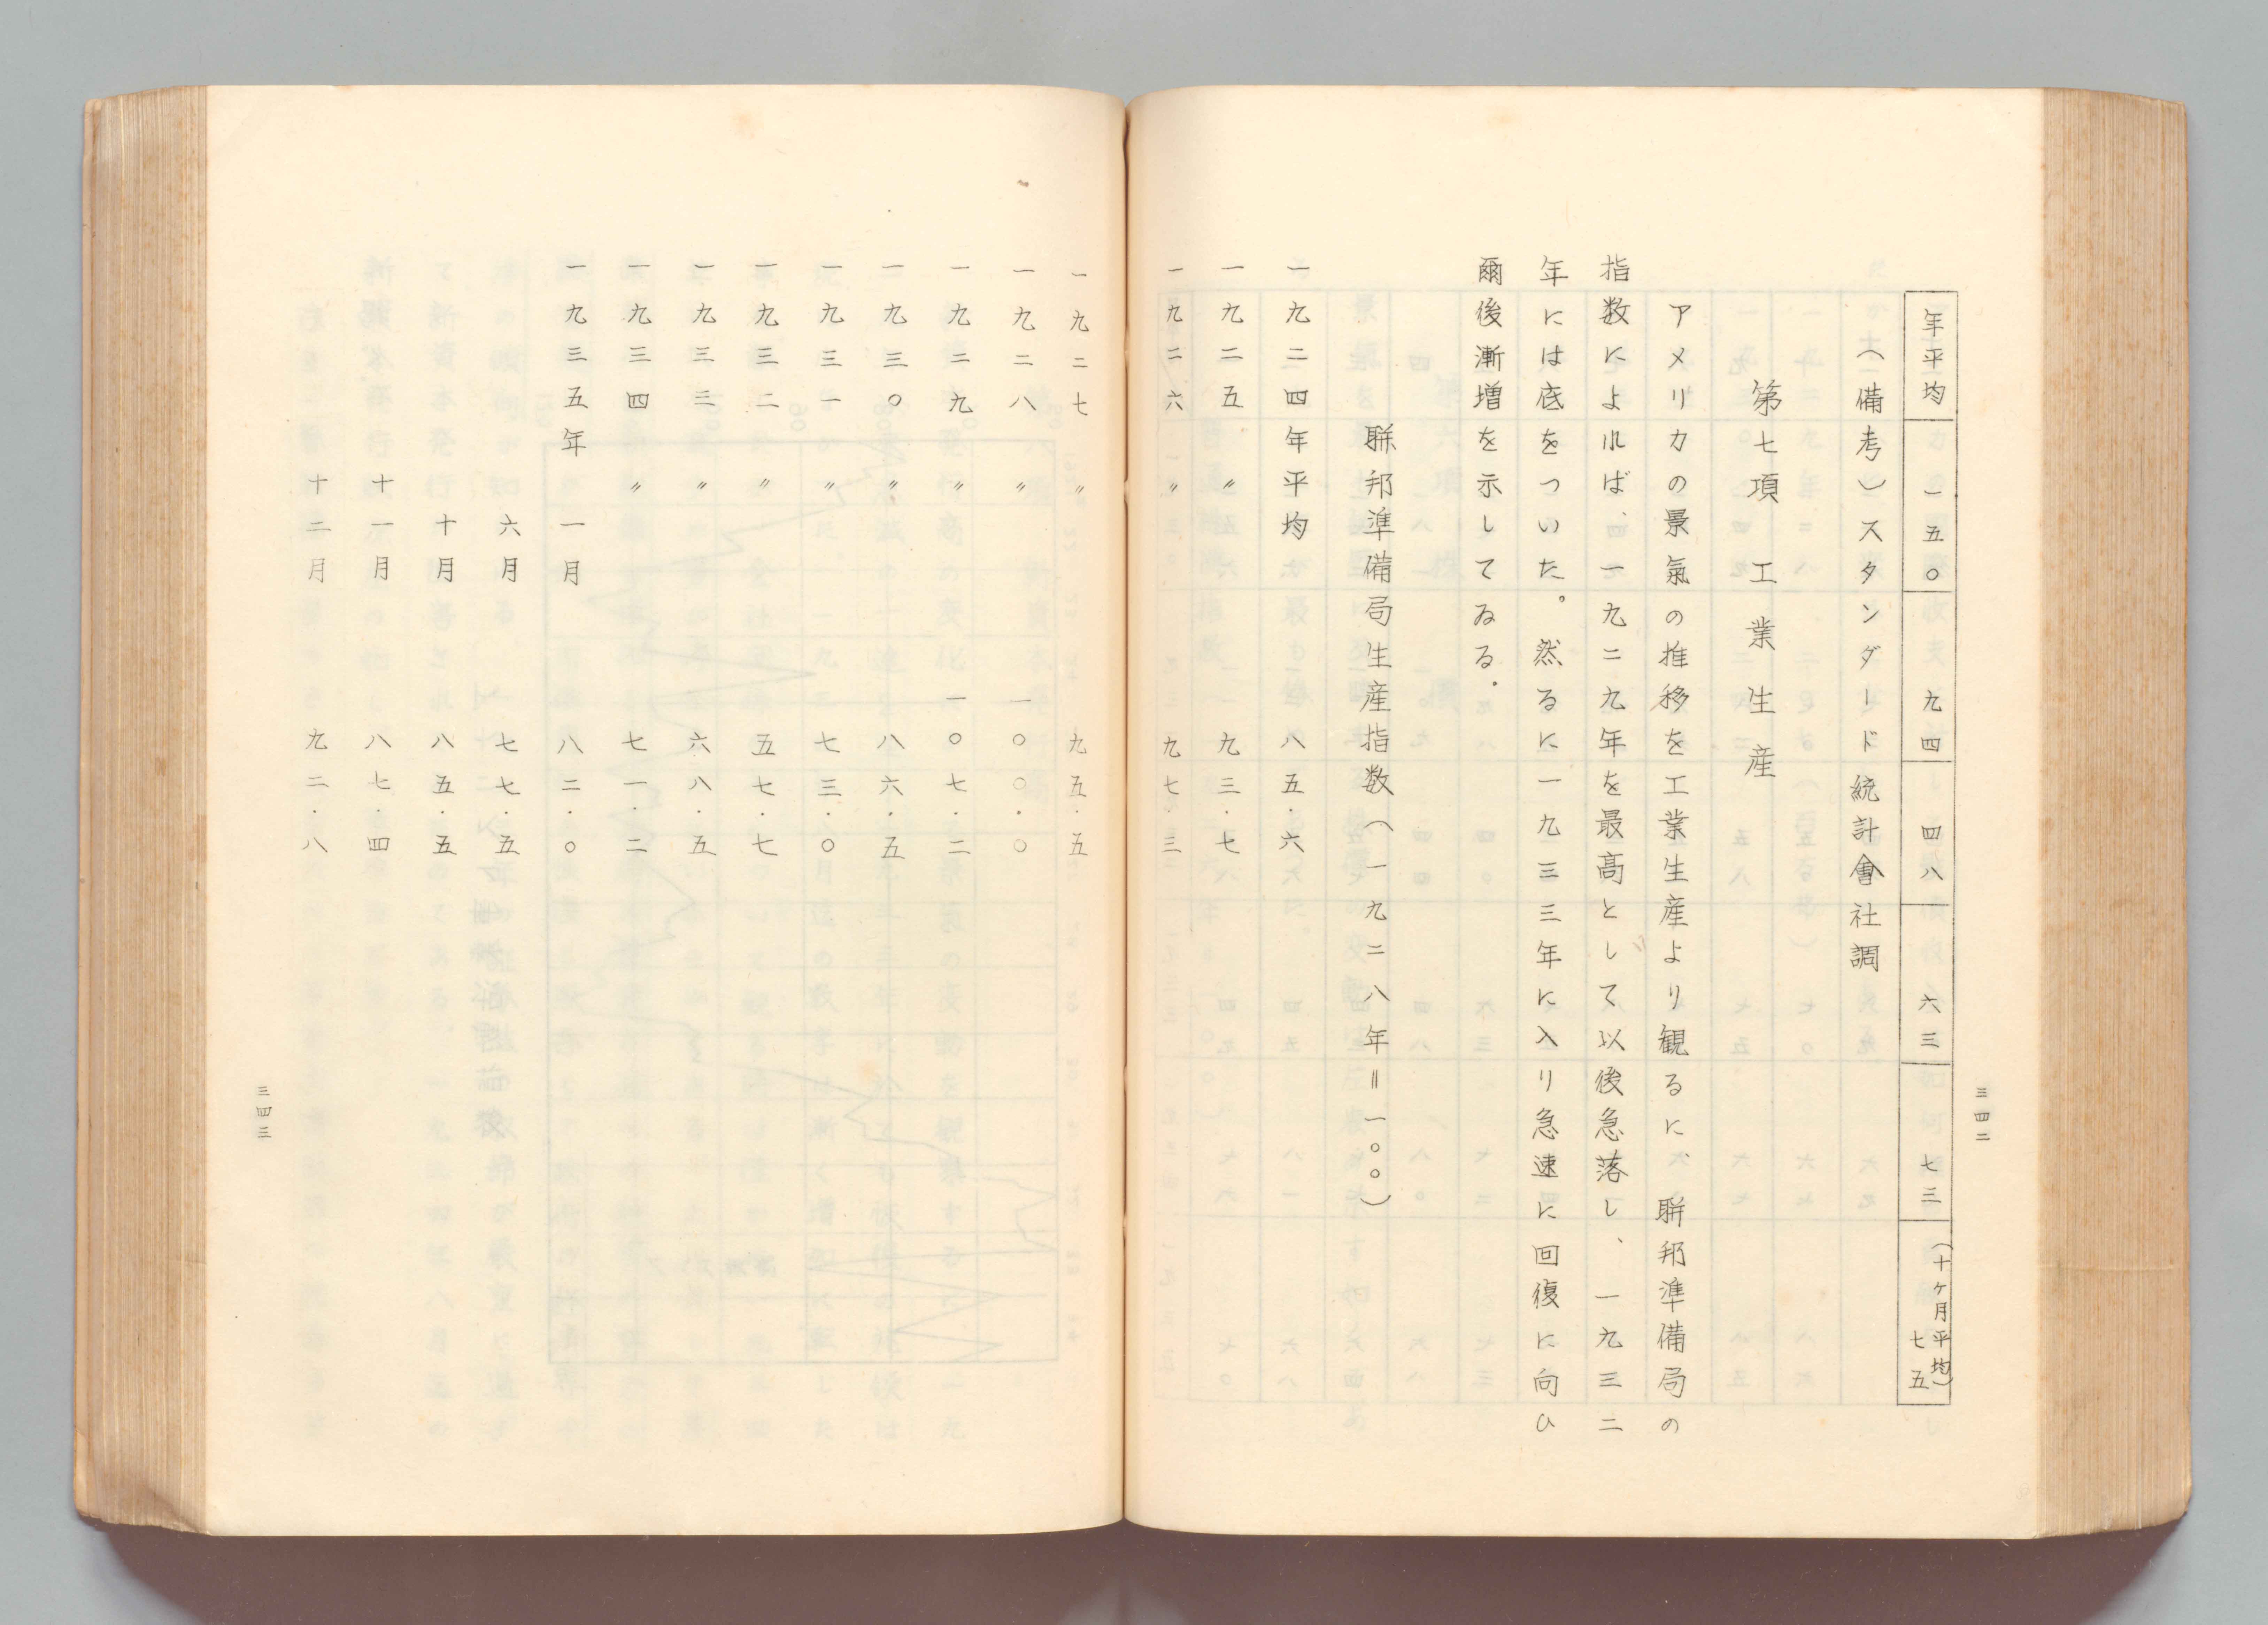 三四二
年平均 一五〇 九四 四八 六三 七三 （十ヶ月平均）七五
（備考）スタンダード統計會社調
第七項　工業生産
アメリカの景氣の推移を工業生産より観るに、聯邦準備局の
指数によれば、一九二九年を最高として以後急落し、一九三二
年には底をついた。然るに一九三三年に入り急速に回復に向ひ
爾後漸増を示してゐる．
聯邦準備局生産指数（一九二八年＝一〇〇）
一九二四年平均　八五．六
一九二五〃　九三．七
一九二六〃　九七．三
一九二七〃　九五．五
一九二八〃　一〇〇．〇
一九二九〃　一〇七．二
一九三〇〃　八六．五
一九三一〃　七三．〇
一九三二〃　五七．七
一九三三〃　六八．五
一九三四〃　七一．二
一九三五年　一月　八二．〇
六月　七七．五
十月　八五．五
十一月　八七．四
十二月　九二．八
三四三